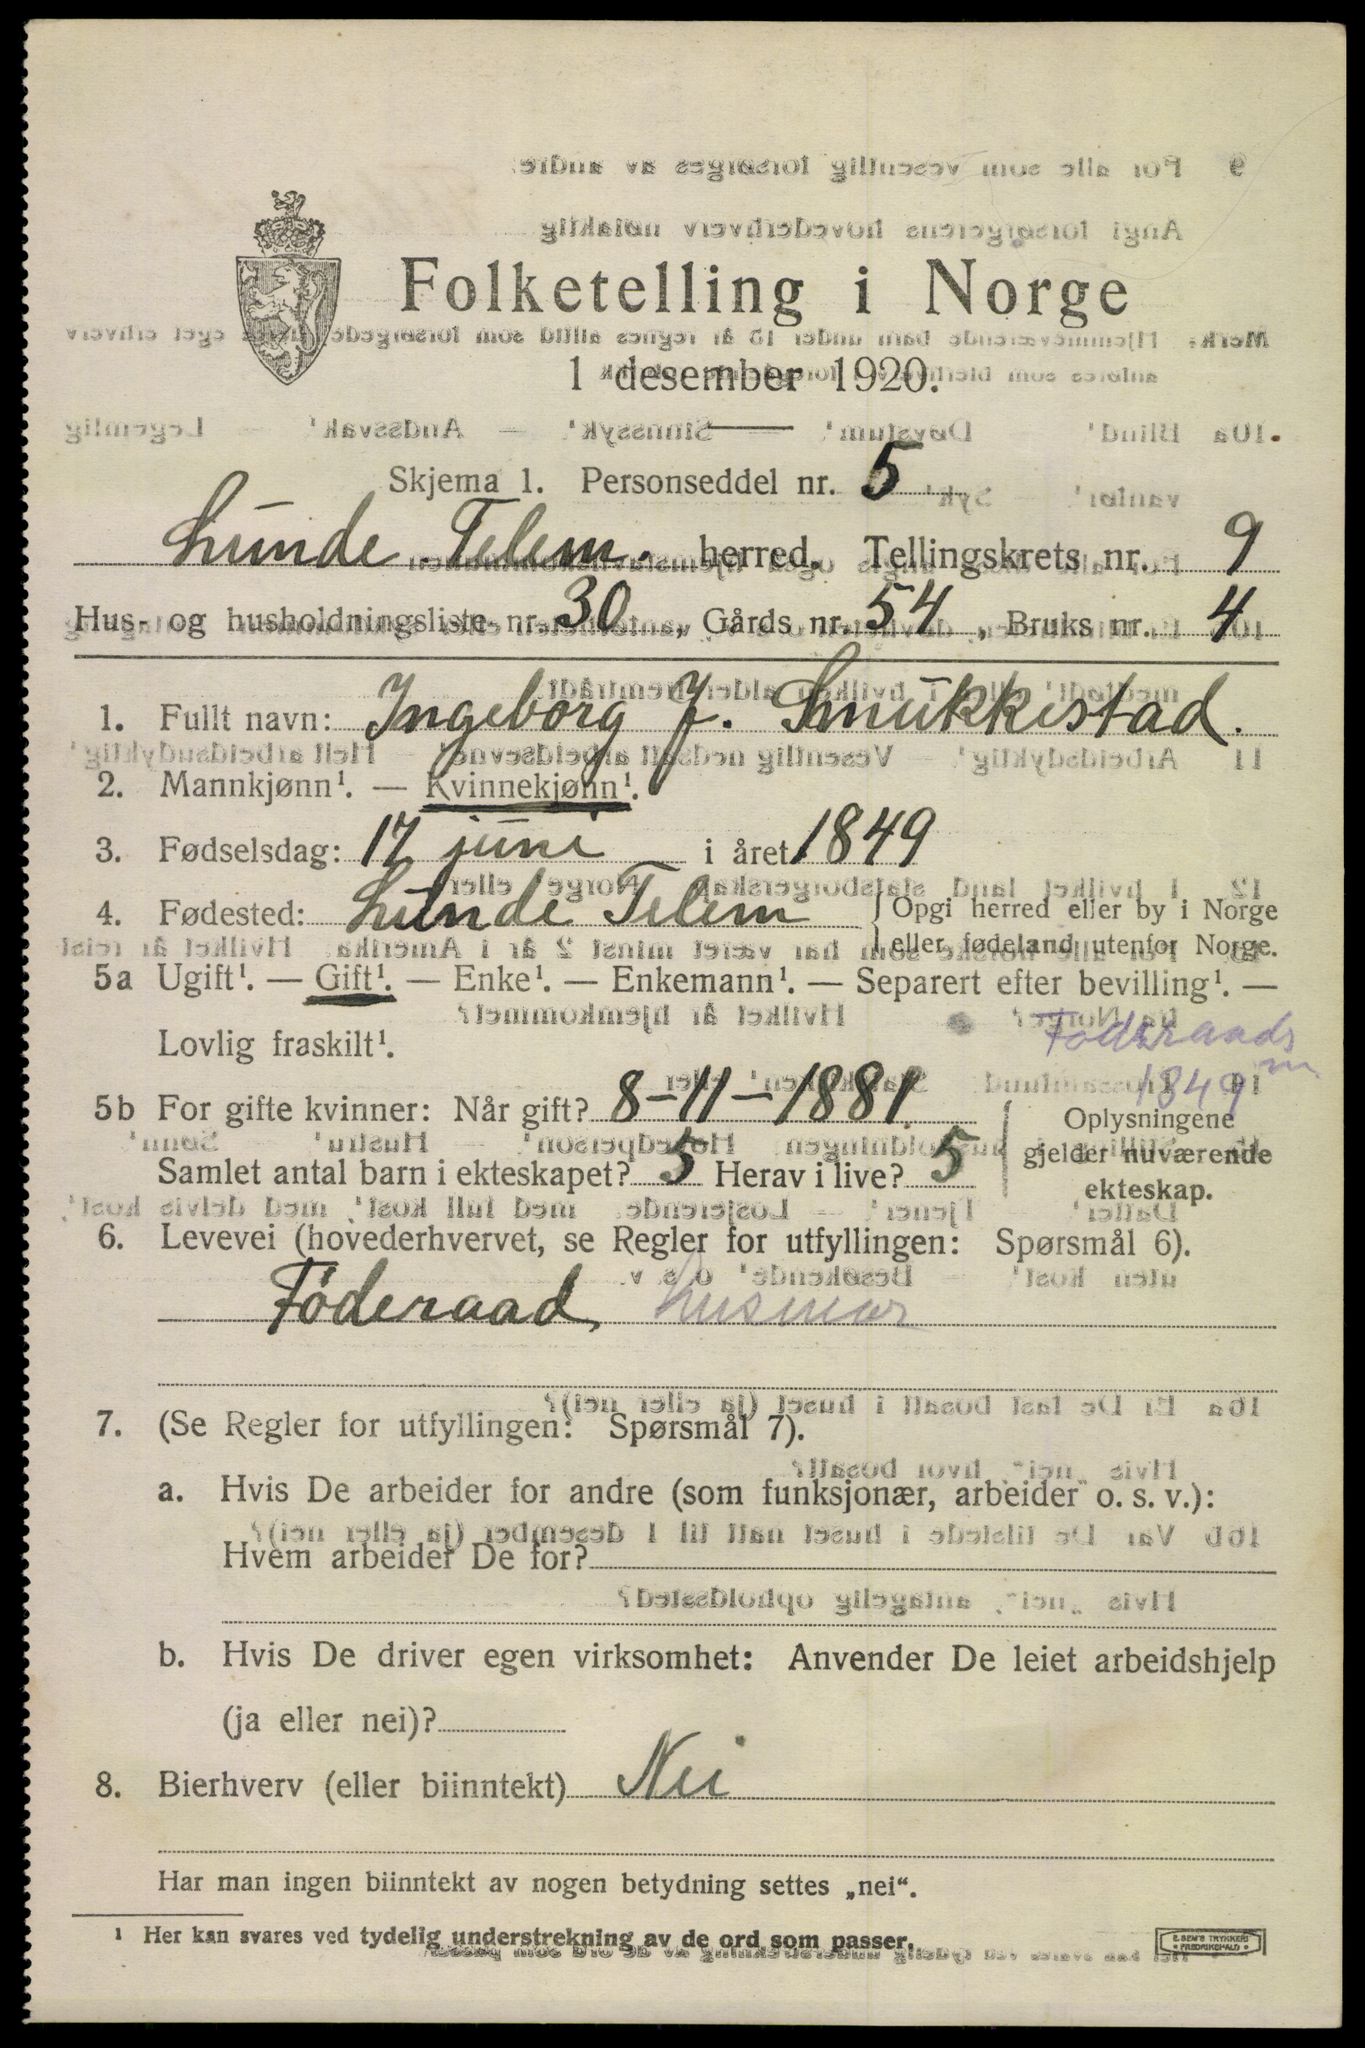 Folketelling i Norge
1 desember 1920.
Skjema 1. Personseddel nr. 5
Lunde Telem. herred. Tellingskrets nr. 9
Hus- og husholdningsliste nr. 30, Gårds nr. 54, Bruks nr. 4
1. Fullt navn: Ingeborg J. Snukkestad.
2. Mannkjønn¹. — Kvinnekjønn¹.
3. Fødselsdag: 17 juni i året 1849
4. Fødested: Lunde Telem { Opgi herred eller by i Norge
eller fødeland utenfor Norge.
5a Ugift¹. — Gift¹. — Enke¹. — Enkemann¹. — Separert efter bevilling¹. —
Lovlig fraskilt¹.
Föderaads
m
1849
5b For gifte kvinner: Når gift? 8-11-1881.
Samlet antal barn i ekteskapet? 5 Herav i live? 5
Oplysningene
gjelder nuværende
ekteskap.
6. Levevei (hovederhvervet, se Regler for utfyllingen: Spørsmål 6).
Föderaad, husmor
7. (Se Regler for utfyllingen: Spørsmål 7).
a. Hvis De arbeider for andre (som funksjonær, arbeider o. s. v.):
Hvem arbeider De for?
b. Hvis De driver egen virksomhet: Anvender De leiet arbeidshjelp
(ja eller nei)?
8. Bierhverv (eller biinntekt) Nei
Har man ingen biinntekt av nogen betydning settes „nei".
¹ Her kan svares ved tydelig understrekning av de ord som passer.
E. SEM'S TRYKKERI
FREDRIKSHALD